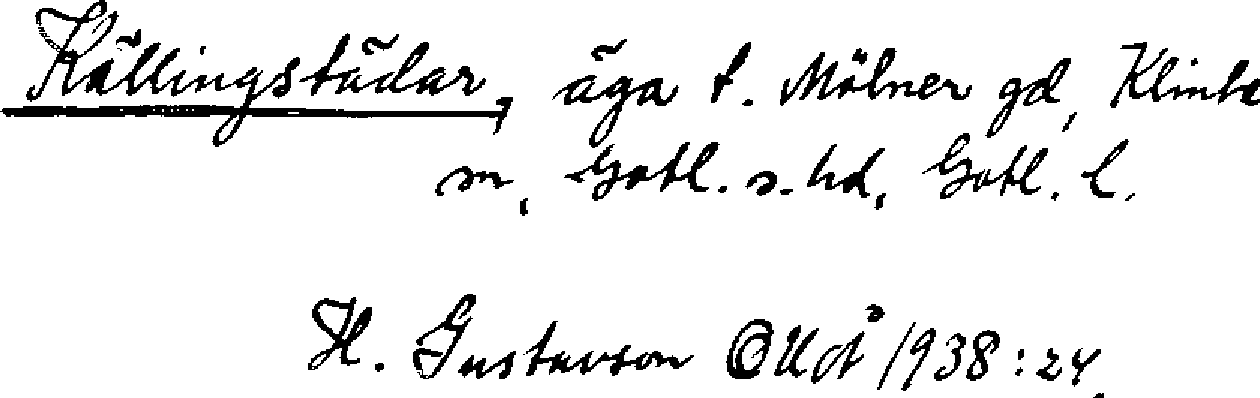 Källingstädar, äga t. Mölner gd, Klinte
sn, Gotl. s. hd, Gotl. l.
H. Gustavson OUÅ 1938:24.